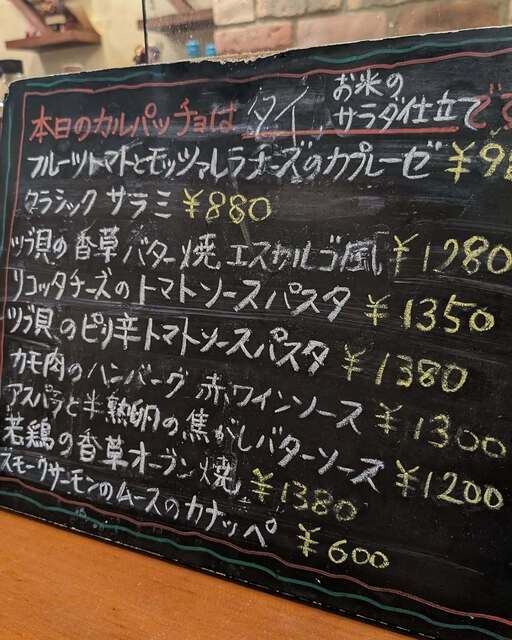 本日のカルパッチョは タイ お米の サラダ仕立てで
フルーツトマトとモッツァレラチーズのカプレーゼ ¥98
クラシック サラミ ¥880
ツブ貝の香草バター焼 エスカルゴ風 ¥1280
リコッタチーズのトマトソースパスタ ¥1350
ツブ貝のピリ辛トマトソースパスタ ¥1380
カモ肉のハンバーグ 赤ワインソース ¥1300
アスパラと半熟卵の焦がしバターソース ¥1200
若鶏の香草オーブン焼 ¥1380
スモークサーモンのムースのカナッペ ¥600